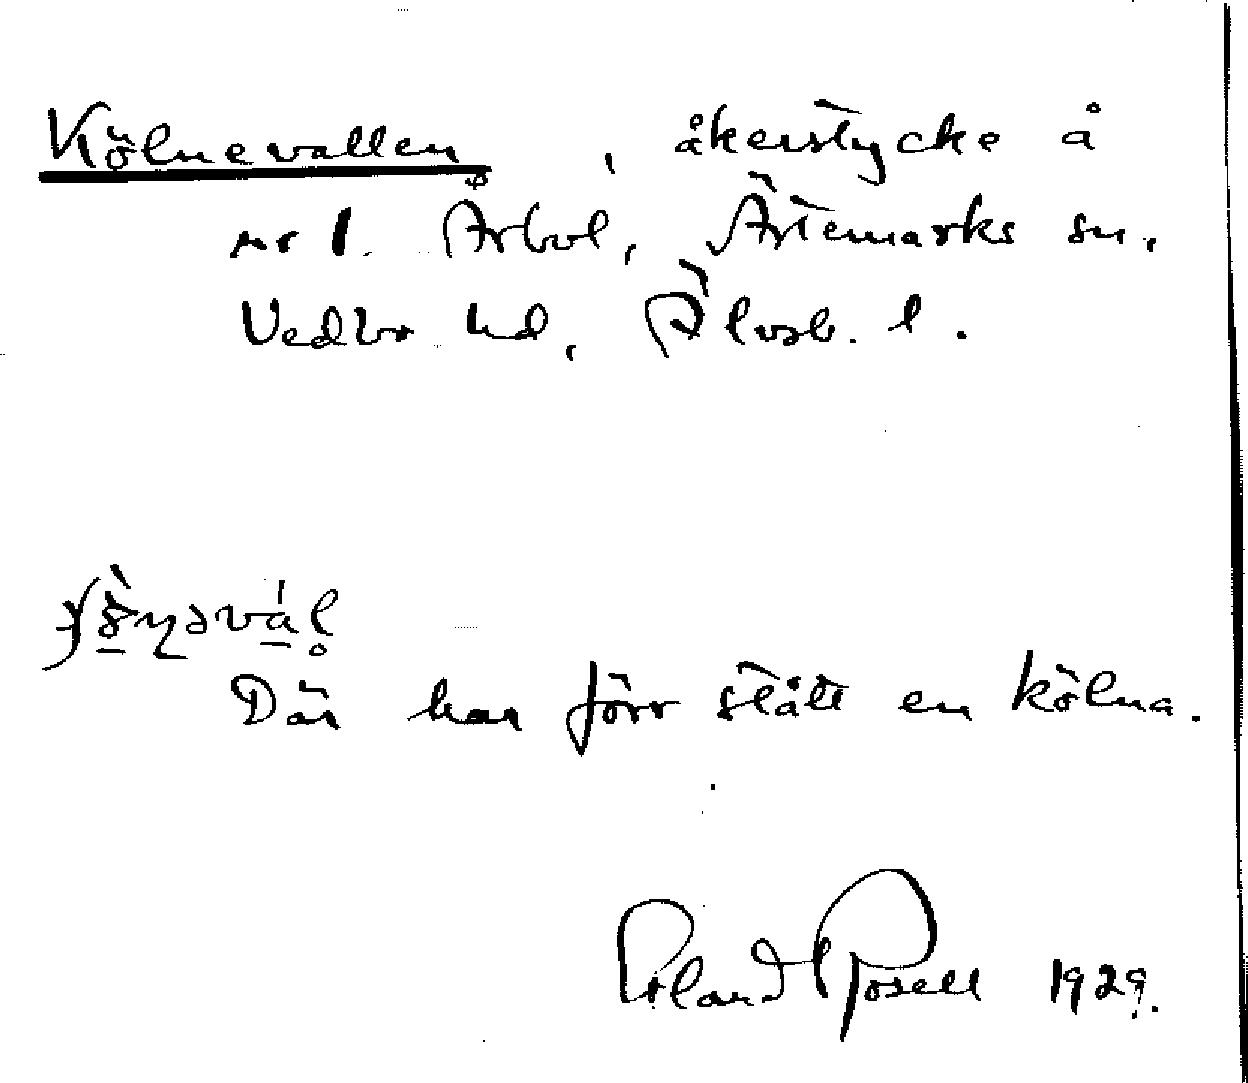 Kölnevallen, åkerstycke å
nr 1. Årbol, Ärtemarks sn,
Vedbo hd, Älvsb. l.
Där har förr stått en kölna.
Roland Rosell 1929.